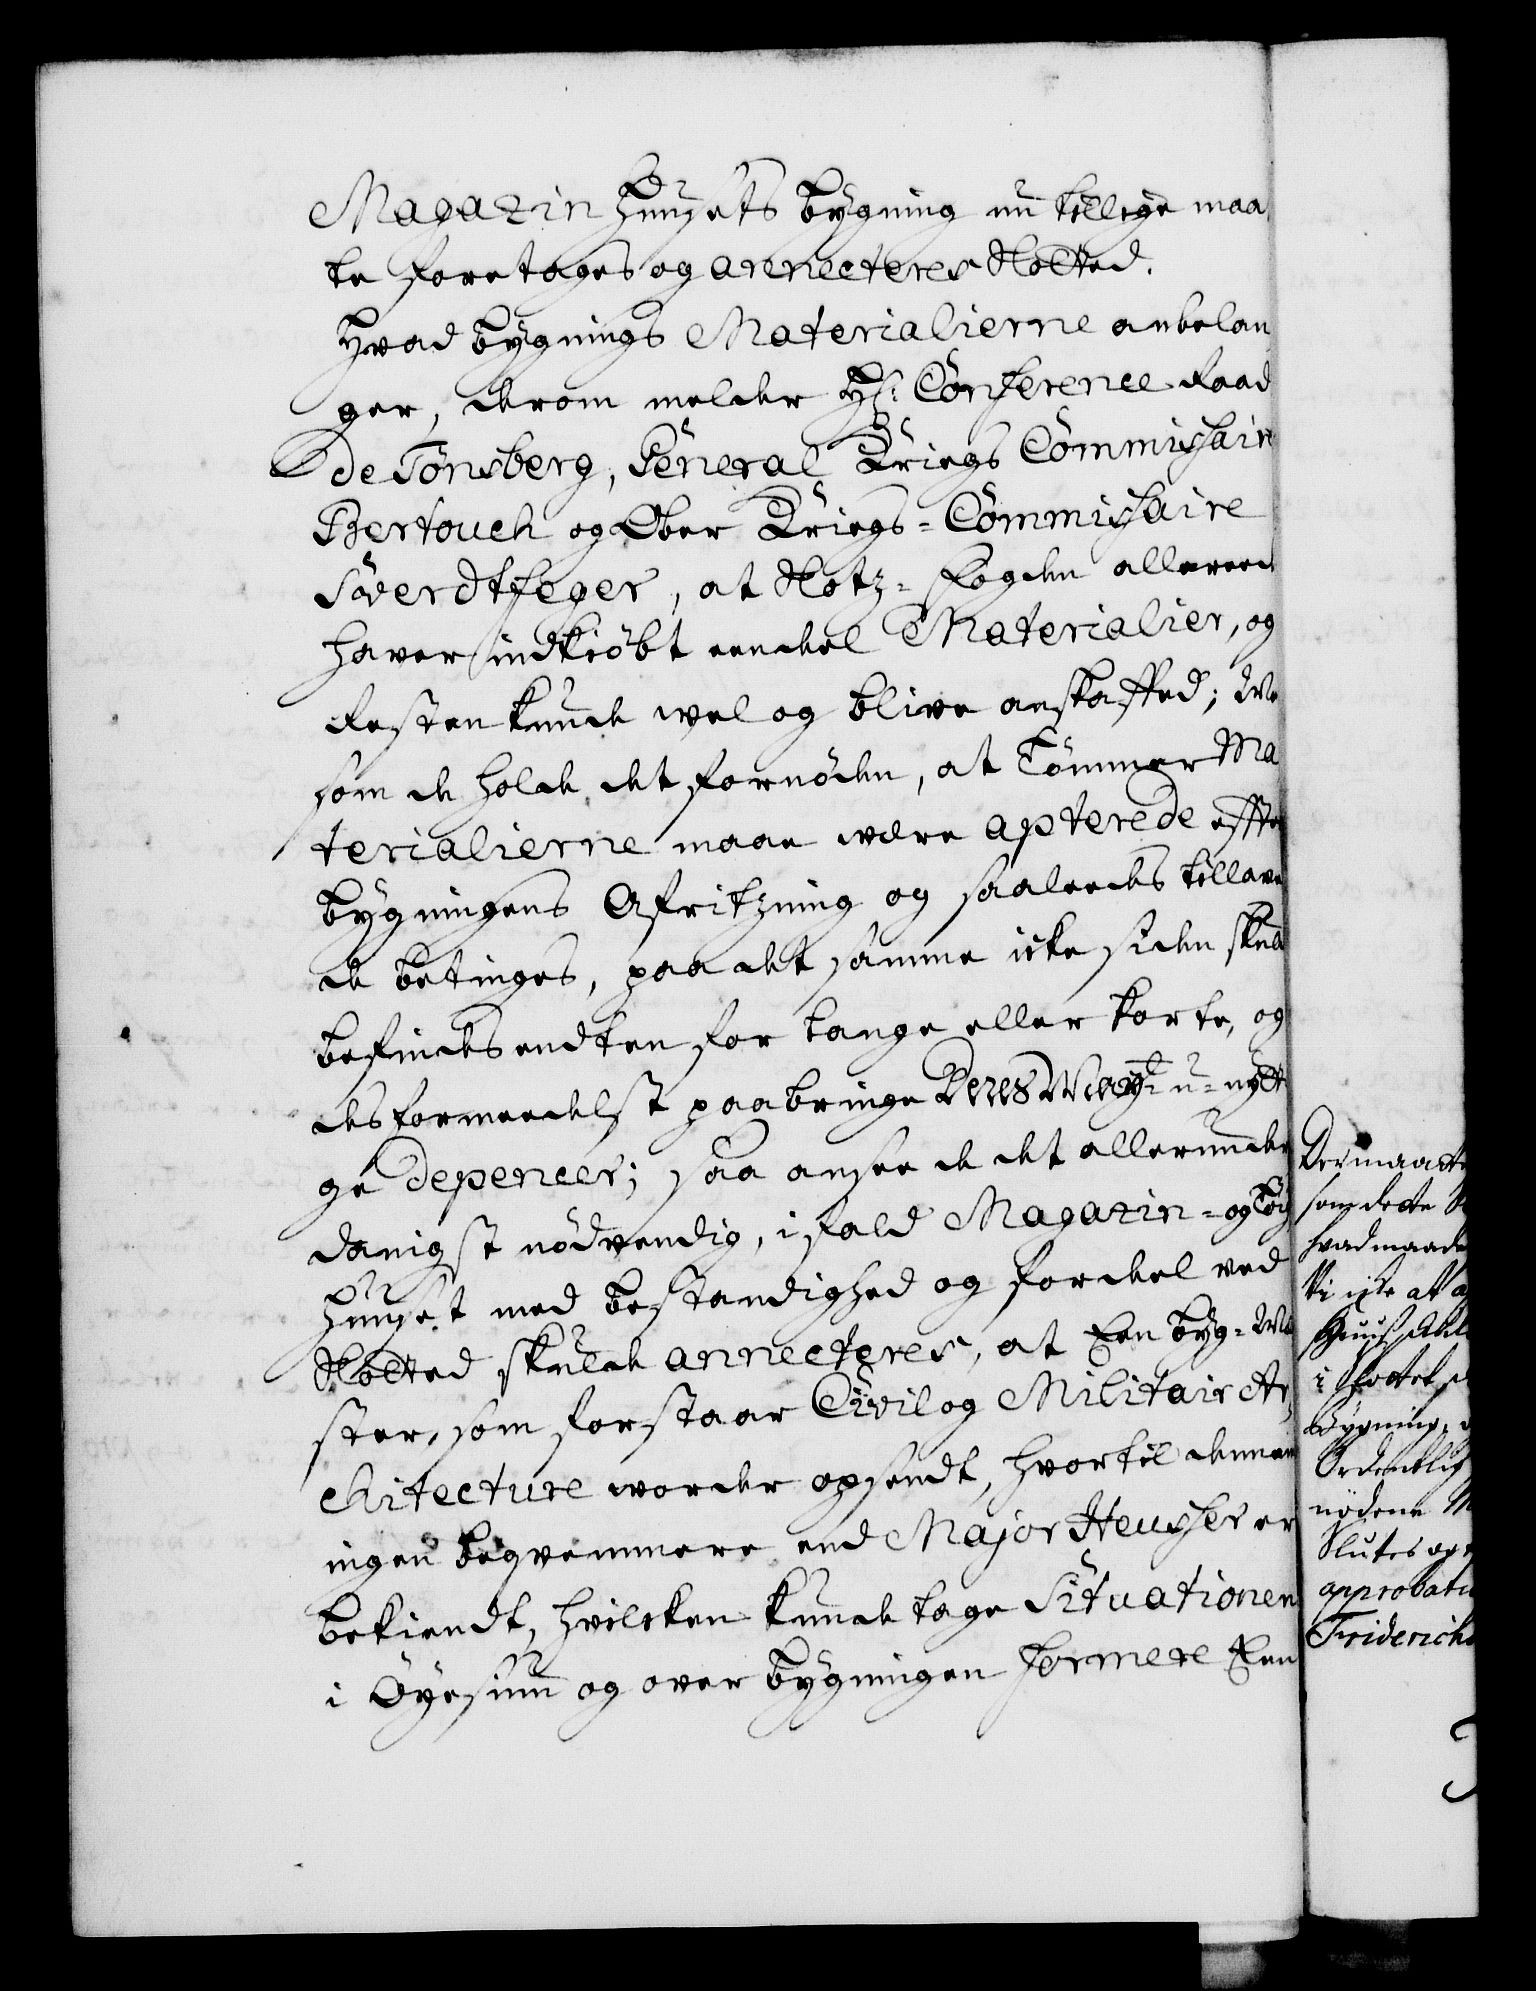 Magazin Huusets bygning nu tillige maa
te foretages og annecteres Slotted.
Hvad bygnings Materialierne anbelan
ger, derom melder Hr: Conference Raad
de Tonsberg, General Kriegs Commissaire
Bertouch og Ober Kriegs-Commissaire
Sverdtfeger, at Slotz-Fogden allereede
haver indkiöbt eendel Materialier, og
Resten kunde vel og blive anskaffed; Me
som de holde det fornöden, at Tömmer Ma
terialierne maae være apterede effter
bygningens Afritzning og saaleedes tillave
de betinges, paa det samme icke siden skulde
befindes endten for lange eller korte, og
des formeedelst paabringe Deres Mayt: u-nytti
ge depencer; saa ansee de det allerunder
danigst nödvendig, ifald Magazin- og Töy
huuset med bestandighed og fordeel ved
Slotted skulde annecteres, at Een byg-Me
ster, som forstaar Civil og Militair Ar
chitecture vorder opsendt, hvortil dennem
ingen beqvemmere end Major Heusser er
bekiendt, hvilcken kunde tage Situationen
i Öyesiun og over bygningen formere Een
Der maatte
som dette
hvad maade
Vi icke at
Huus
i Slottet
Bygning,
Ordentlig
nödene
Slutes og
approbati
Friderichs